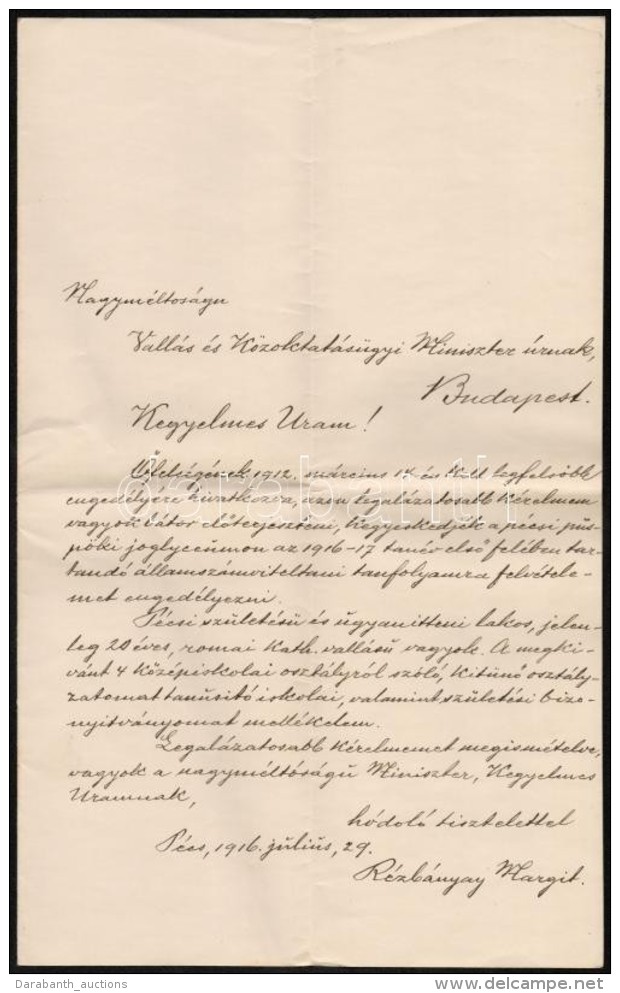 Nagyméltóságu
Vallás és Közoktatásügyi Miniszter úrnak,
Budapest.
Kegyelmes Uram!
Őfelségének 1912. március 14 én kelt legfelsőbb
engedélyére hivatkozva, azon legalázatosabb kérelmem
vagyok bátor előterjeszteni, kegyeskedjék a pécsi püs-
pöki joglyceumon az 1916-17 tanév első felében tar-
tandó államszámviteltani tanfolyamra felvétele-
met engedélyezni.
Pécsi születésü és ugyanitteni lakos, jelen-
leg 20 éves, romai kath. vallásu vagyok. A megki-
vánt 4 középiskolai osztályról szóló, kitünő osztály-
zatomat tanusitó iskolai, valamint születési bizo-
nyitványomat mellékelem.
Legalázatosabb kérelmemet megismételve,
vagyok a nagyméltóságu Miniszter, Kegyelmes
Uramnak,
hódoló tisztelettel
Pécs, 1916. július, 29.
Rézbányay Margit.
darabanth
Darabanth_auctions
delcampe.net